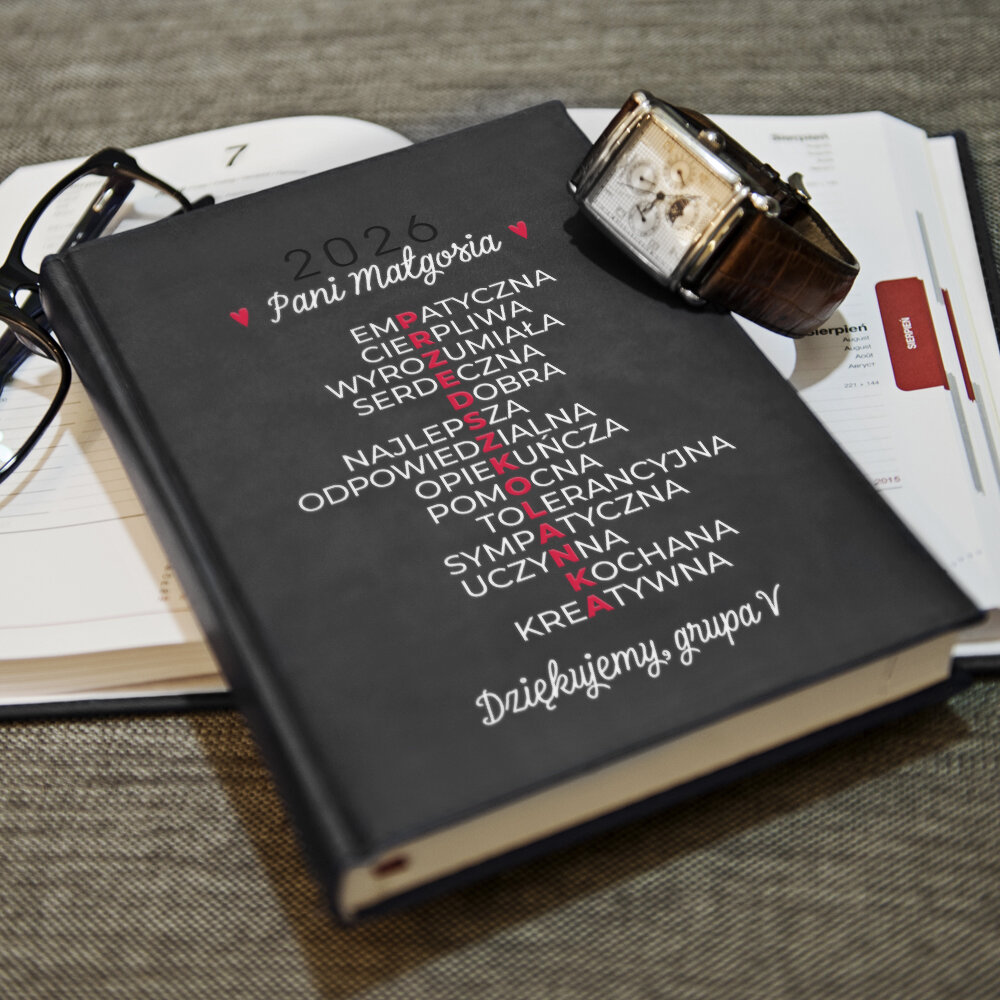 7
2026
Pani Małgosia
EMPATYCZNA
CIERPLIWA
WYROZUMIAŁA
SERDECZNA
DOBRA
NAJLEPSZA
ODPOWIEDZIALNA
OPIEKUŃCZA
POMOCNA
TOLERANCYJNA
SYMPATYCZNA
UCZYNNA
KOCHANA
KREATYWNA
Dziękujemy, grupa V
Sierpień
August
August
Août
Август
221 + 144
SIERPIEŃ
Sierpień
2015